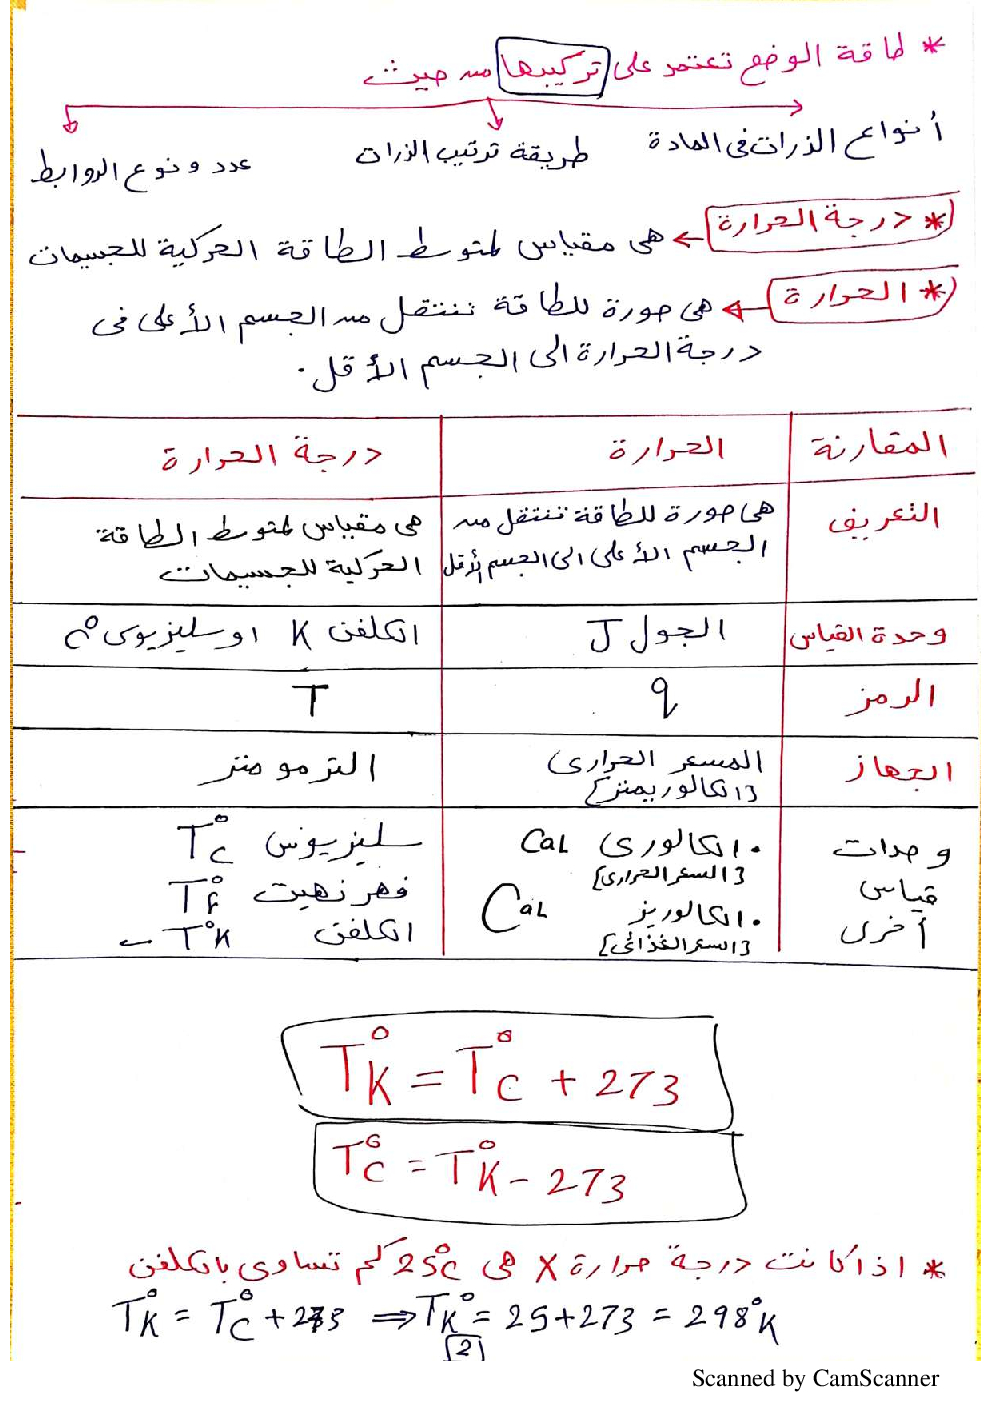 * طاقة الوضع تعتمد على تركيبها من حيث
أنواع الذرات فى المادة
طريقة ترتيب الذرات
عدد ونوع الروابط
* درجة الحرارة ← هى مقياس لمتوسط الطاقة الحركية للجسيمات
* الحرارة ← هى صورة للطاقة تنتقل من الجسم الأعلى فى
درجة الحرارة الى الجسم الأقل.
المقارنة | الحرارة | درجة الحرارة
التعريف | هى صورة للطاقة تنتقل من الجسم الأعلى الى الجسم الأقل | هى مقياس لمتوسط الطاقة الحركية للجسيمات
وحدة القياس | الجول J | الكلفن K او سليزيوس °C
الرمز | q | T
الجهاز | المسعر الحرارى [الكالوريمتر] | الترمومتر
وحدات قياس أخرى | • الكالورى Cal [السعر الحرارى] • الكالوريز Cal [السعر الغذائى] | سليزيوس T°C فهرنهيت T°F الكلفن T°K
T°K = T°C + 273
T°C = T°K - 273
* اذا كانت درجة حرارة X هى 25°C كم تساوى بالكلفن
T°K = T°C + 273 ⇒ T°K = 25+273 = 298°K
2
Scanned by CamScanner